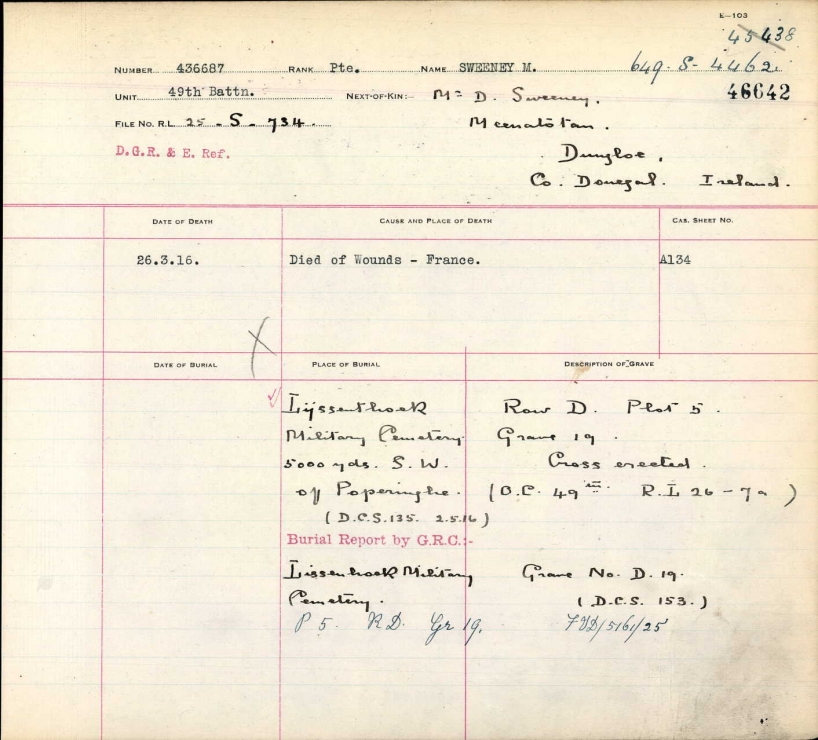 E—103
45438
NUMBER 436687 RANK Pte. NAME SWEENEY M. 649-S-4462.
UNIT 49th Battn. NEXT-OF-KIN:- Mr D. Sweeney, 46642
FILE No. R.L. 25 - S - 734. Meenatotan.
D.G.R. & E. Ref. Dungloe,
Co. Donegal. Ireland.
DATE OF DEATH CAUSE AND PLACE OF DEATH CAS. SHEET No.
26.3.16. Died of Wounds - France. A134
DATE OF BURIAL PLACE OF BURIAL DESCRIPTION OF GRAVE
Lijssenthoek Row D. Plot 5.
Military Cemetery Grave 19.
5000 yds. S.W. Cross erected.
of Poperinghe. (O.C. 49th R.L 26-7a)
(D.C.S. 135. 2.5.16)
Burial Report by G.R.C.:-
Lissenhoek Military Grave No. D. 19.
Cemetery. (D.C.S. 153.)
P 5. R D. Gr 19. /5161/25